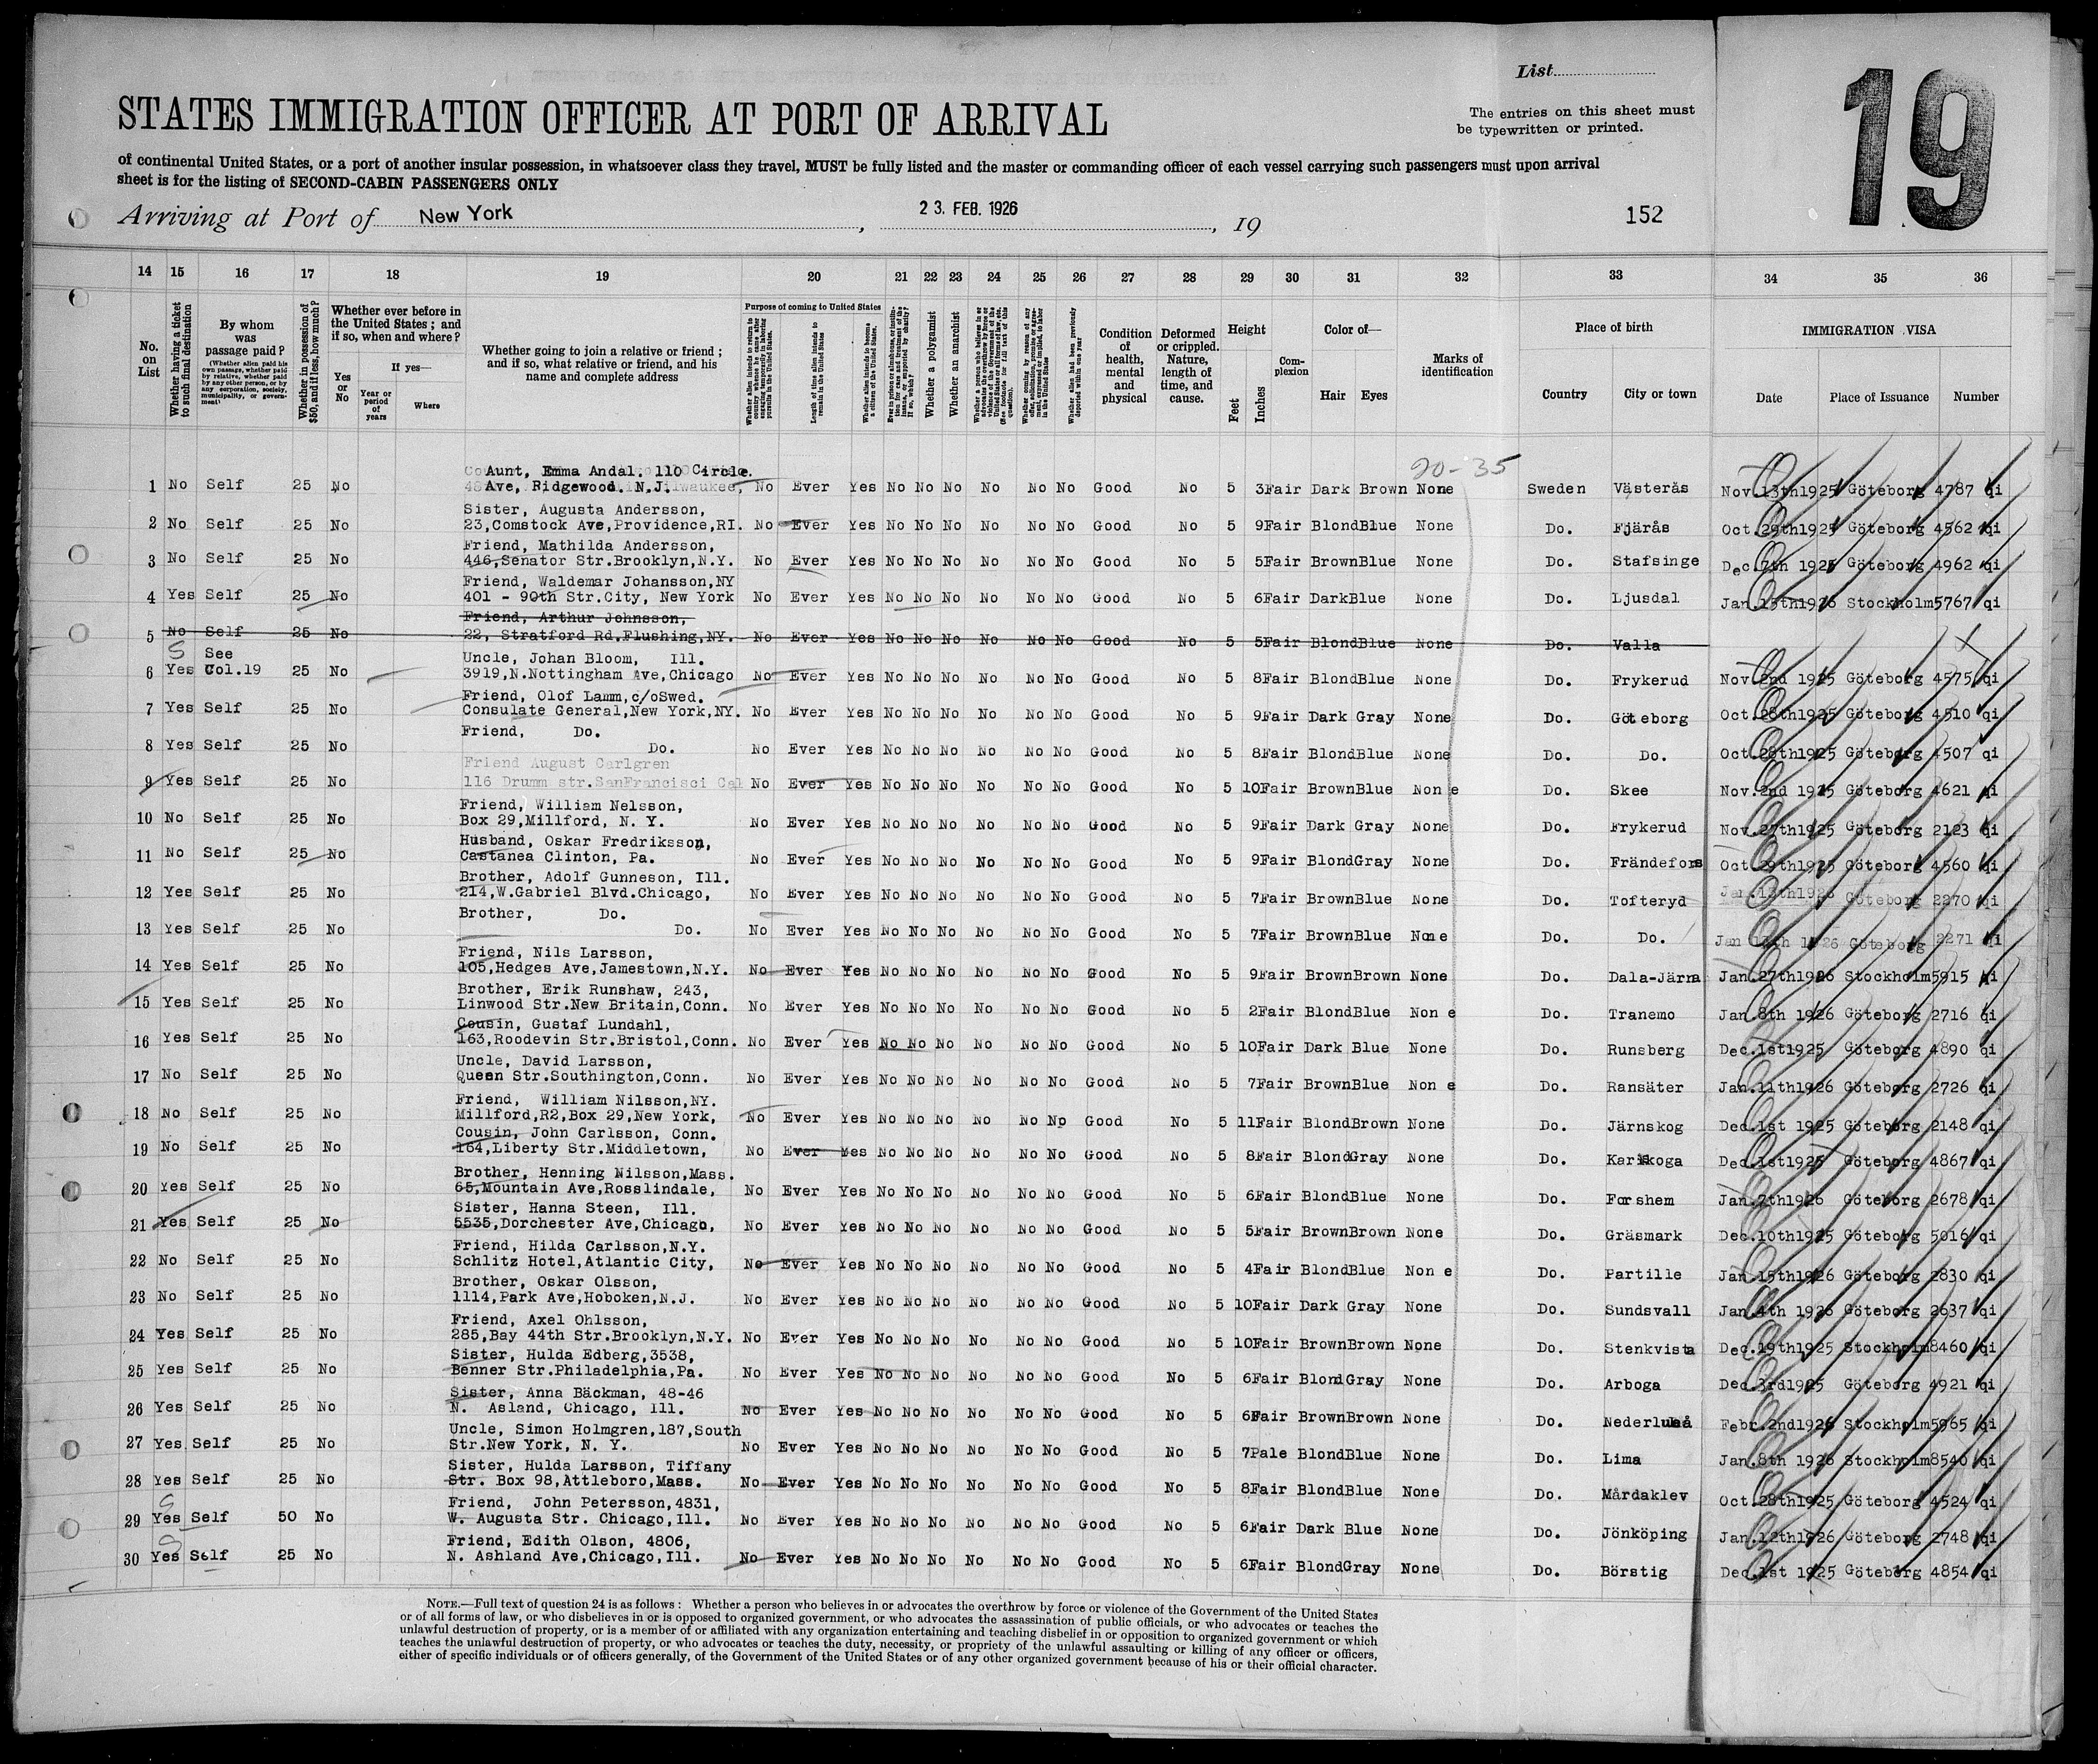 List
The entries on this sheet must
be typewritten or printed.
19
STATES IMMIGRATION OFFICER AT PORT OF ARRIVAL
of continental United States, or a port of another insular possession, in whatsoever class they travel, MUST be fully listed and the master or commanding officer of each vessel carrying such passengers must upon arrival
sheet is for the listing of SECOND-CABIN PASSENGERS ONLY
Arriving at Port of New York, 23. FEB. 1926, 19 152
14 15 16 17 18 19 20 21 22 23 24 25 26 27 28 29 30 31 32 33 34 35 36
No. on List
Whether having a ticket to such final destination
By whom was passage paid?
(Whether alien paid his own passage, whether paid by relative, whether paid by any other person, or by any corporation, society, municipality, or government)
Whether in possession of $50, and if less, how much?
Whether ever before in the United States; and if so, when and where?
Yes or No
If yes—
Year or period of years
Where
Whether going to join a relative or friend; and if so, what relative or friend, and his name and complete address
Purpose of coming to United States
Whether alien intends to return to country whence he came after engaging temporarily in laboring pursuits in the United States.
Length of time alien intends to remain in the United States
Whether alien intends to become a citizen of the United States.
Whether a polygamist
Whether an anarchist
Condition of health, mental and physical
Deformed or crippled. Nature, length of time, and cause.
Height
Feet
Inches
Complexion
Color of—
Hair Eyes
Marks of identification
Place of birth
Country City or town
IMMIGRATION VISA
Date Place of Issuance Number
20-35
Aunt, Emma Andal. 110 Circle.
1 No Self 25 No Ave, Ridgewood. N.J. No Ever Yes No No No No No No Good No 5 3 Fair Dark Brown None Sweden Västerås Nov.13th1925 Göteborg 4787 qi
Sister, Augusta Andersson,
2 No Self 25 No 23,Comstock Ave,Providence,RI. No Ever Yes No No No No No No Good No 5 9 Fair Blond Blue None Do. Fjärås Oct.29th1925 Göteborg 4562 qi
Friend, Mathilda Andersson,
3 No Self 25 No 446,Senator Str.Brooklyn,N.Y. No Ever Yes No No No No No No Good No 5 5 Fair Brown Blue None Do. Stafsinge Dec.7th 1925 Göteborg 4962 qi
Friend, Waldemar Johansson,NY
4 Yes Self 25 No 401 - 90th Str.City, New York No Ever Yes No No No No No No Good No 5 6 Fair Dark Blue None Do. Ljusdal Jan.15th1926 Stockholm 5767 qi
Friend, Arthur Johnsson,
5 No Self 25 No 22, Stratford Rd.Flushing,NY. No Ever Yes No No No No No No Good No 5 5 Fair Blond Blue None Do. Valla
See Uncle, Johan Bloom, Ill.
6 Yes Col.19 25 No 3919,N.Nottingham Ave,Chicago No Ever Yes No No No No No No Good No 5 8 Fair Blond Blue None Do. Frykerud Nov.2nd 1925 Göteborg 4575 qi
Friend, Olof Lamm,c/oSwed.
7 Yes Self 25 No Consulate General,New York,NY. No Ever Yes No No No No No No Good No 5 9 Fair Dark Gray None Do. Göteborg Oct.28th1925 Göteborg 4510 qi
Friend, Do.
8 Yes Self 25 No Do. No Ever Yes No No No No No No Good No 5 8 Fair Blond Blue None Do. Do. Oct.28th1925 Göteborg 4507 qi
Friend August Carlgren
9 Yes Self 25 No 116 Drumm str.SanFrancisci Cal No Ever Yes No No No No No No Good No 5 10 Fair Brown Blue None Do. Skee Nov.2nd 1925 Göteborg 4621 qi
Friend, William Nelsson,
10 No Self 25 No Box 29,Millford, N. Y. No Ever Yes No No No No No No Good No 5 9 Fair Dark Gray None Do. Frykerud Nov.27th1925 Göteborg 2123 qi
Husband, Oskar Fredriksson,
11 No Self 25 No Castanea Clinton, Pa. No Ever Yes No No No No No No Good No 5 9 Fair Blond Gray None Do. Frändefors Oct.29th1925 Göteborg 4560 qi
Brother, Adolf Gunneson, Ill.
12 Yes Self 25 No 214,W.Gabriel Blvd.Chicago, No Ever Yes No No No No No No Good No 5 7 Fair Brown Blue None Do. Tofteryd Jan.12th1926 Göteborg 2270 qi
Brother, Do.
13 Yes Self 25 No Do. No Ever Yes No No No No No No Good No 5 7 Fair Brown Blue None Do. Do. Jan 12th 1926 Göteborg 2271 qi
Friend, Nils Larsson,
14 Yes Self 25 No 105,Hedges Ave,Jamestown,N.Y. No Ever Yes No No No No No No Good No 5 9 Fair Brown Brown None Do. Dala-Järna Jan.27th1926 Stockholm 5915 qi
Brother, Erik Runshaw, 243,
15 Yes Self 25 No Linwood Str.New Britain,Conn. No Ever Yes No No No No No No Good No 5 2 Fair Blond Blue None Do. Tranemo Jan.8th 1926 Göteborg 2716 qi
Cousin, Gustaf Lundahl,
16 Yes Self 25 No 163,Roodevin Str.Bristol,Conn. No Ever Yes No No No No No No Good No 5 10 Fair Dark Blue None Do. Runsberg Dec.1st1925 Göteborg 4890 qi
Uncle, David Larsson,
17 No Self 25 No Queen Str.Southington,Conn. No Ever Yes No No No No No No Good No 5 7 Fair Brown Blue None Do. Ransäter Jan.11th1926 Göteborg 2726 qi
Friend, William Nilsson,NY.
18 No Self 25 No Millford,R2,Box 29,New York, No Ever Yes No No No No No No Good No 5 11 Fair Blond Brown None Do. Järnskog Dec.1st 1925 Göteborg 2148 qi
Cousin, John Carlsson, Conn.
19 No Self 25 No 164,Liberty Str.Middletown, No Ever Yes No No No No No No Good No 5 8 Fair Blond Gray None Do. Karlskoga Dec.1st1925 Göteborg 4867 qi
Brother, Henning Nilsson,Mass.
20 Yes Self 25 No 65,Mountain Ave,Rosslindale, No Ever Yes No No No No No No Good No 5 6 Fair Blond Blue None Do. Forshem Jan.7th1926 Göteborg 2678 qi
Sister, Hanna Steen, Ill.
21 Yes Self 25 No 5535,Dorchester Ave,Chicago, No Ever Yes No No No No No No Good No 5 5 Fair Brown Brown None Do. Gräsmark Dec.10th1925 Göteborg 5016 qi
Friend, Hilda Carlsson,N.Y.
22 No Self 25 No Schlitz Hotel,Atlantic City, No Ever Yes No No No No No No Good No 5 4 Fair Blond Blue None Do. Partille Jan.15th1926 Göteborg 2830 qi
Brother, Oskar Olsson,
23 No Self 25 No 1114,Park Ave,Hoboken,N.J. No Ever Yes No No No No No No Good No 5 10 Fair Dark Gray None Do. Sundsvall Jan.4th 1926 Göteborg 2637 qi
Friend, Axel Ohlsson,
24 Yes Self 25 No 285,Bay 44th Str.Brooklyn,N.Y. No Ever Yes No No No No No No Good No 5 10 Fair Brown Brown None Do. Stenkvista Dec.19th1925 Stockholm 8460 qi
Sister, Hulda Edberg,3538,
25 Yes Self 25 No Benner Str.Philadelphia,Pa. No Ever Yes No No No No No No Good No 5 6 Fair Blond Gray None Do. Arboga Dec.3rd1925 Göteborg 4921 qi
Sister, Anna Bäckman, 48-46
26 Yes Self 25 No N. Asland, Chicago, Ill. No Ever Yes No No No No No No Good No 5 6 Fair Brown Brown None Do. Nederluleå Febr.2nd1926 Stockholm 5965 qi
Uncle, Simon Holmgren,187,South
27 Yes Self 25 No Str.New York, N. Y. No Ever Yes No No No No No No Good No 5 7 Pale Blond Blue None Do. Lima Jan.8th 1926 Stockholm 8540 qi
Sister, Hulda Larsson, Tiffany
28 Yes Self 25 No Str. Box 98,Attleboro,Mass. No Ever Yes No No No No No No Good No 5 8 Fair Blond Blue None Do. Mårdaklev Oct.28th1925 Göteborg 4524 qi
Friend, John Petersson,4831,
29 Yes Self 50 No W. Augusta Str. Chicago,Ill. No Ever Yes No No No No No No Good No 5 6 Fair Dark Blue None Do. Jönköping Jan.12th1926 Göteborg 2748 qi
Friend, Edith Olson, 4806,
30 Yes Self 25 No N. Ashland Ave,Chicago,Ill. No Ever Yes No No No No No No Good No 5 6 Fair Blond Gray None Do. Börstig Dec.1st 1925 Göteborg 4854 qi
NOTE.—Full text of question 24 is as follows: Whether a person who believes in or advocates the overthrow by force or violence of the Government of the United States
or of all forms of law, or who disbelieves in or is opposed to organized government, or who advocates the assassination of public officials, or who advocates or teaches the
unlawful destruction of property, or is a member of or affiliated with any organization entertaining and teaching disbelief in or opposition to organized government or which
teaches the unlawful destruction of property, or who advocates or teaches the duty, necessity, or propriety of the unlawful assaulting or killing of any officer or officers,
either of specific individuals or of officers generally, of the Government of the United States or of any other organized government because of his or their official character.